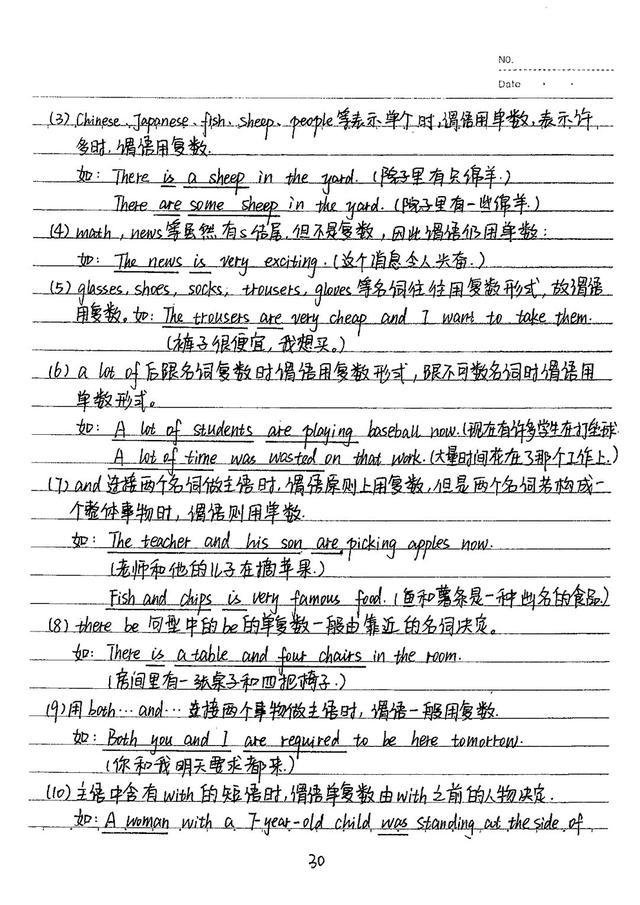 NO.
Date · ·
(3) Chinese、Japanese、fish、sheep、people等表示单个时,谓语用单数,表示许
多时,谓语用复数.
如: There is a sheep in the yard. (院子里有只绵羊.)
There are some sheep in the yard. (院子里有一些绵羊.)
(4) math, news等虽然有s结尾,但不是复数,因此谓语仍用单数:
如: The news is very exciting. (这个消息令人兴奋.)
(5) glasses, shoes, socks, trousers, gloves等名词往往用复数形式,故谓语
用复数。如: The trousers are very cheap and I want to take them.
(裤子很便宜,我想买。)
(6) a lot of 后跟名词复数时谓语用复数形式,跟不可数名词时谓语用
单数形式。
如: A lot of students are playing baseball now. (现在有许多学生在打垒球
A lot of time was wasted on that work. (大量时间花在了那个工作上.)
(7) and连接两个名词做主语时,谓语原则上用复数,但是两个名词若构成一
个整体事物时,谓语则用单数.
如: The teacher and his son are picking apples now.
(老师和他的儿子在摘苹果.)
Fish and chips is very famous food. (鱼和薯条是一种出名的食品)
(8) there be 句型中的be的单复数一般由靠近的名词决定。
如: There is a table and four chairs in the room.
(房间里有一张桌子和四把椅子.)
(9) 用both…and…连接两个事物做主语时,谓语一般用复数.
如: Both you and I are required to be here tomorrow.
(你和我明天要求都来.)
(10) 主语中含有with的短语时,谓语单复数由with之前的人物决定.
如: A woman with a 7-year-old child was standing at the side of
30